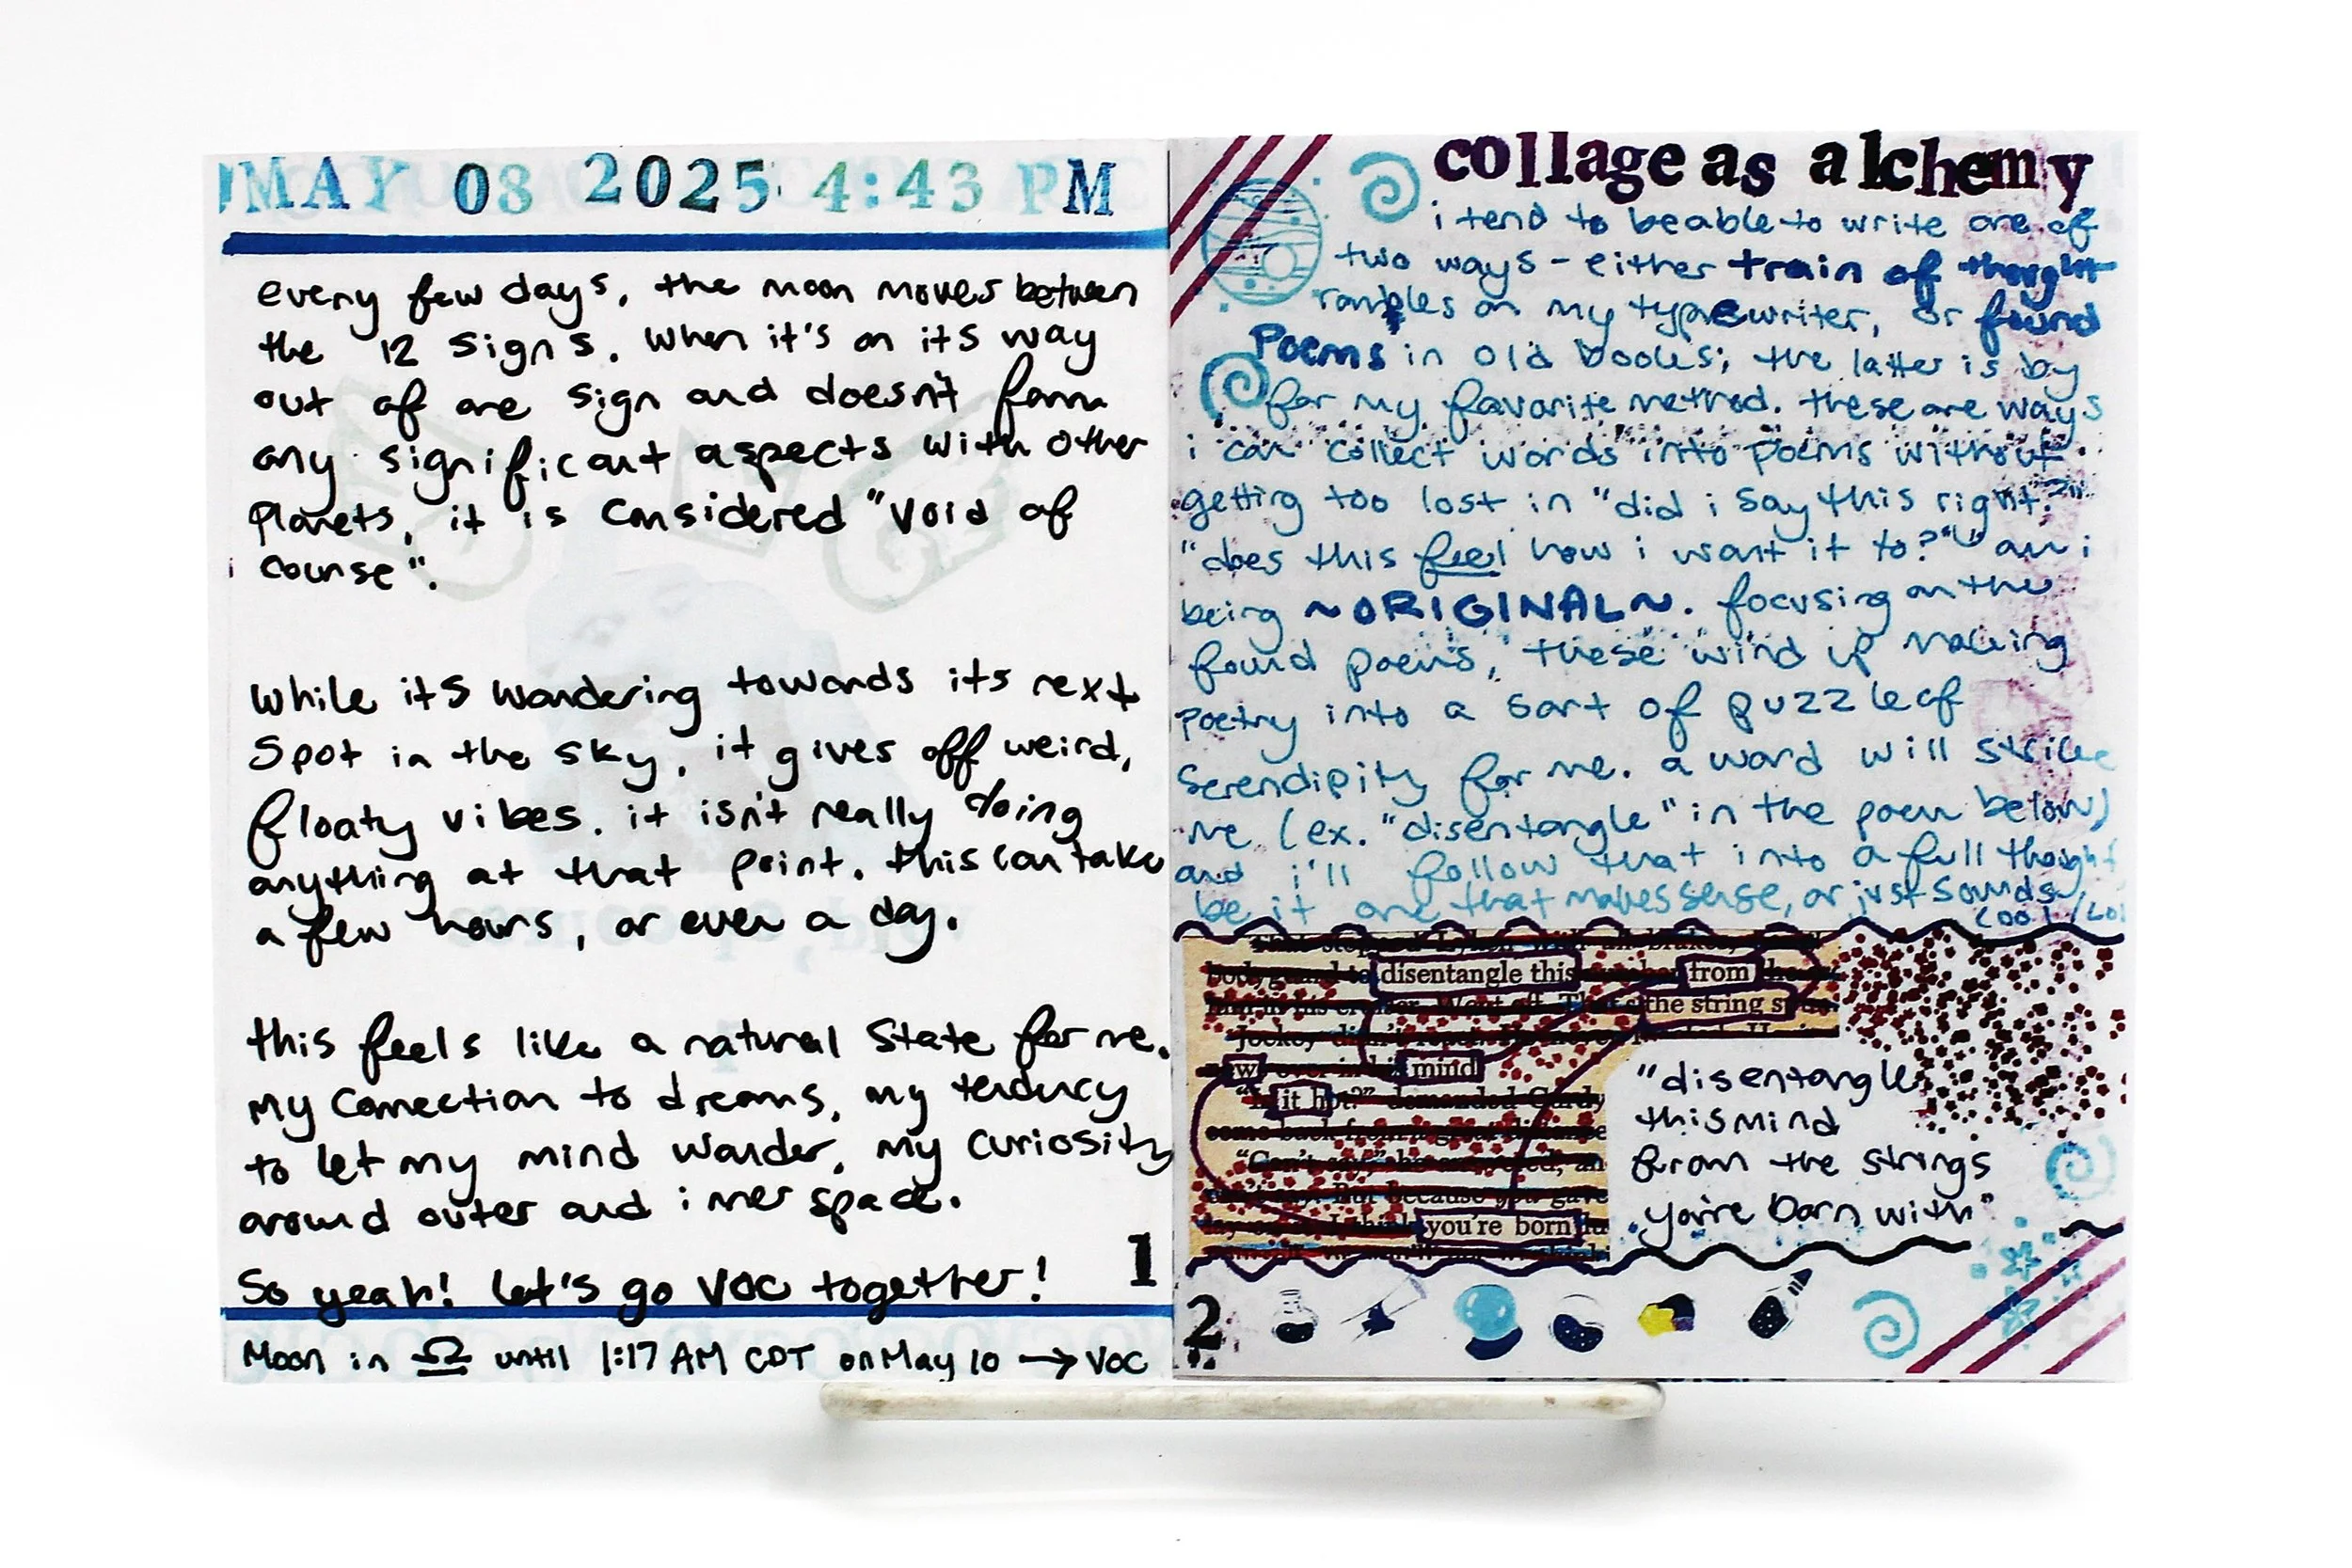 MAY 08 2025 4:43 PM
every few days, the moon moves between
the 12 signs. when it's on its way
out of one sign and doesn't form
any significant aspects with other
planets, it is considered "void of
course".
while its wandering towards its next
spot in the sky, it gives off weird,
floaty vibes. it isn't really doing
anything at that point. this can take
a few hours, or even a day.
this feels like a natural state for me.
my connection to dreams, my tendency
to let my mind wander, my curiosity
around outer and inner space.
So yeah! Let's go VOC together!
1
Moon in ♎ until 1:17 AM CDT on May 10 → VOC
collage as alchemy
i tend to be able to write one of
two ways - either train of thought
rambles on my typewriter, or found
poems in old books; the latter is by
far my favorite method. these are ways
i can collect words into poems without
getting too lost in "did i say this right?"
"does this feel how i want it to?" "am i
being ~ORIGINAL~. focusing on the
found poems, these wind up making
poetry into a sort of puzzle of
serendipity for me. a word will strike
me (ex. "disentangle" in the poem below)
and i'll follow that into a full thought
be it one that makes sense, or just sounds
cool /lol
disentangle this from
the string s
w mind
it h
you're born
"disentangle
this mind
from the strings
you're born with"
2